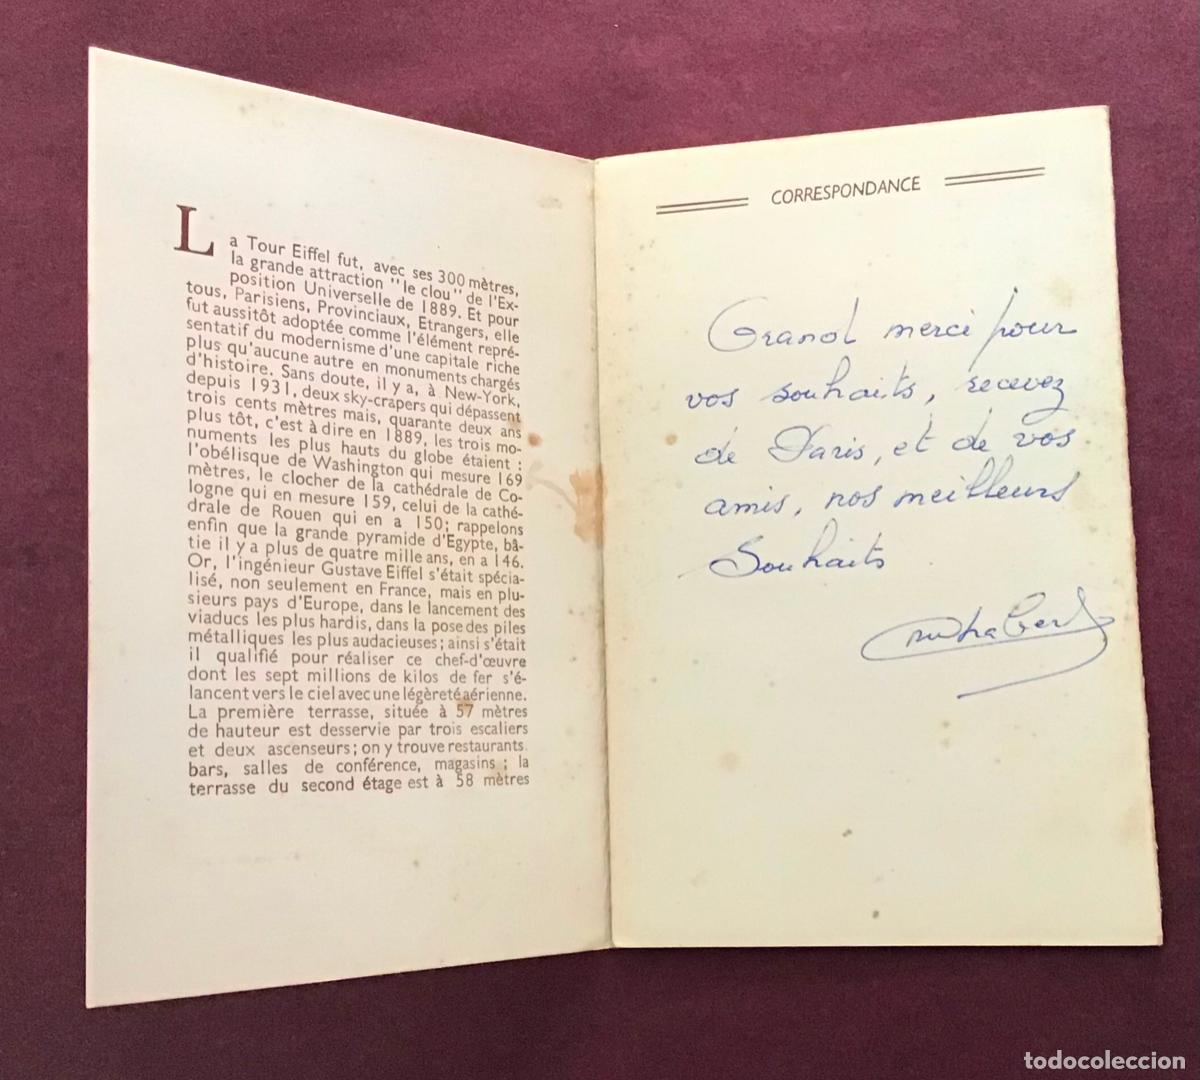 La Tour Eiffel fut, avec ses 300 mètres,
la grande attraction "le clou" de l'Ex-
position Universelle de 1889. Et pour
tous, Parisiens, Provinciaux, Etrangers, elle
fut aussitôt adoptée comme l'élément repré-
sentatif du modernisme d'une capitale riche
plus qu'aucune autre en monuments chargés
d'histoire. Sans doute, il y a, à New-York,
depuis 1931, deux sky-crapers qui dépassent
trois cents mètres mais, quarante deux ans
plus tôt, c'est à dire en 1889, les trois mo-
numents les plus hauts du globe étaient :
l'obélisque de Washington qui mesure 169
mètres, le clocher de la cathédrale de Co-
logne qui en mesure 159, celui de la cathé-
drale de Rouen qui en a 150; rappelons
enfin que la grande pyramide d'Egypte, bâ-
tie il y a plus de quatre mille ans, en a 146.
Or, l'ingénieur Gustave Eiffel s'était spécia-
lisé, non seulement en France, mais en plu-
sieurs pays d'Europe, dans le lancement des
viaducs les plus hardis, dans la pose des piles
métalliques les plus audacieuses; ainsi s'était
il qualifié pour réaliser ce chef-d'œuvre
dont les sept millions de kilos de fer s'é-
lancent vers le ciel avec une légèreté aérienne.
La première terrasse, située à 57 mètres
de hauteur est desservie par trois escaliers
et deux ascenseurs; on y trouve restaurants
bars, salles de conférence, magasins; la
terrasse du second étage est à 58 mètres
CORRESPONDANCE
Grand merci pour
vos souhaits, recevez
de Paris, et de vos
amis, nos meilleurs
Souhaits
todocoleccion